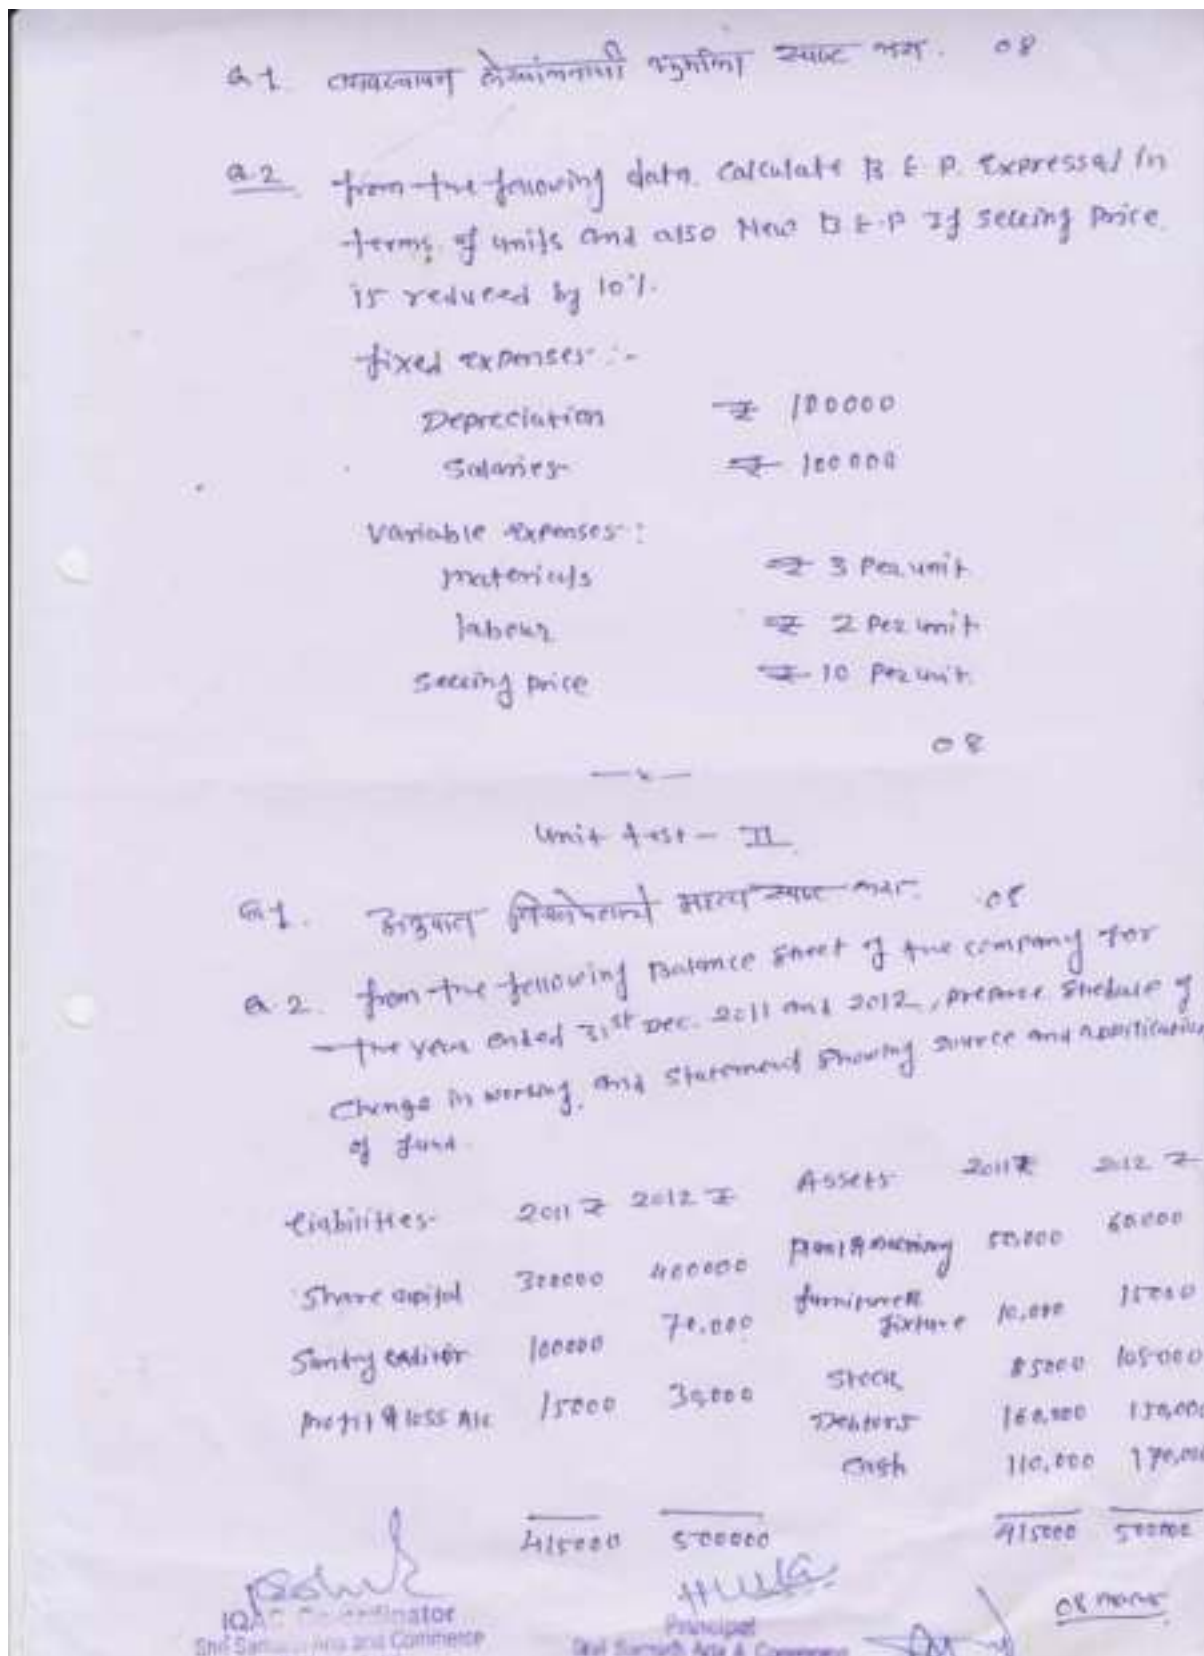 Q 1 व्यवस्थापन लेखांकनाची स्पष्ट करा. 08
Q.2 from the following data. Calculate B E P. Expressed in
terms of units and also New B E.P If selling price
is reduced by 10%.
fixed expenses :-
Depreciation ₹ 100000
Salaries ₹ 100000
Variable expenses :
materials ₹ 3 Per unit
labour ₹ 2 Per unit
selling price ₹ 10 Per unit.
08
Unit test - II
Q 1. स्पष्ट करा. 08
Q. 2. from the following Balance sheet of the company for
the year ended 31st Dec. 2011 and 2012, prepare Shedule of
Change in working, and statement showing source and application
of fund.
Liabilities 2011 ₹ 2012 ₹ Assets 2011 ₹ 2012 ₹
Share capital 300000 400000 50,000 60,000
Sundry 100000 70,000 fixture 10,000 15000
Profit & loss A/c 15000 30,000 Stock 85000 105000
Debtors 160,000 150,000
Cash 110,000 170,000
415000 500000 415000 500000
08 marks
Principal